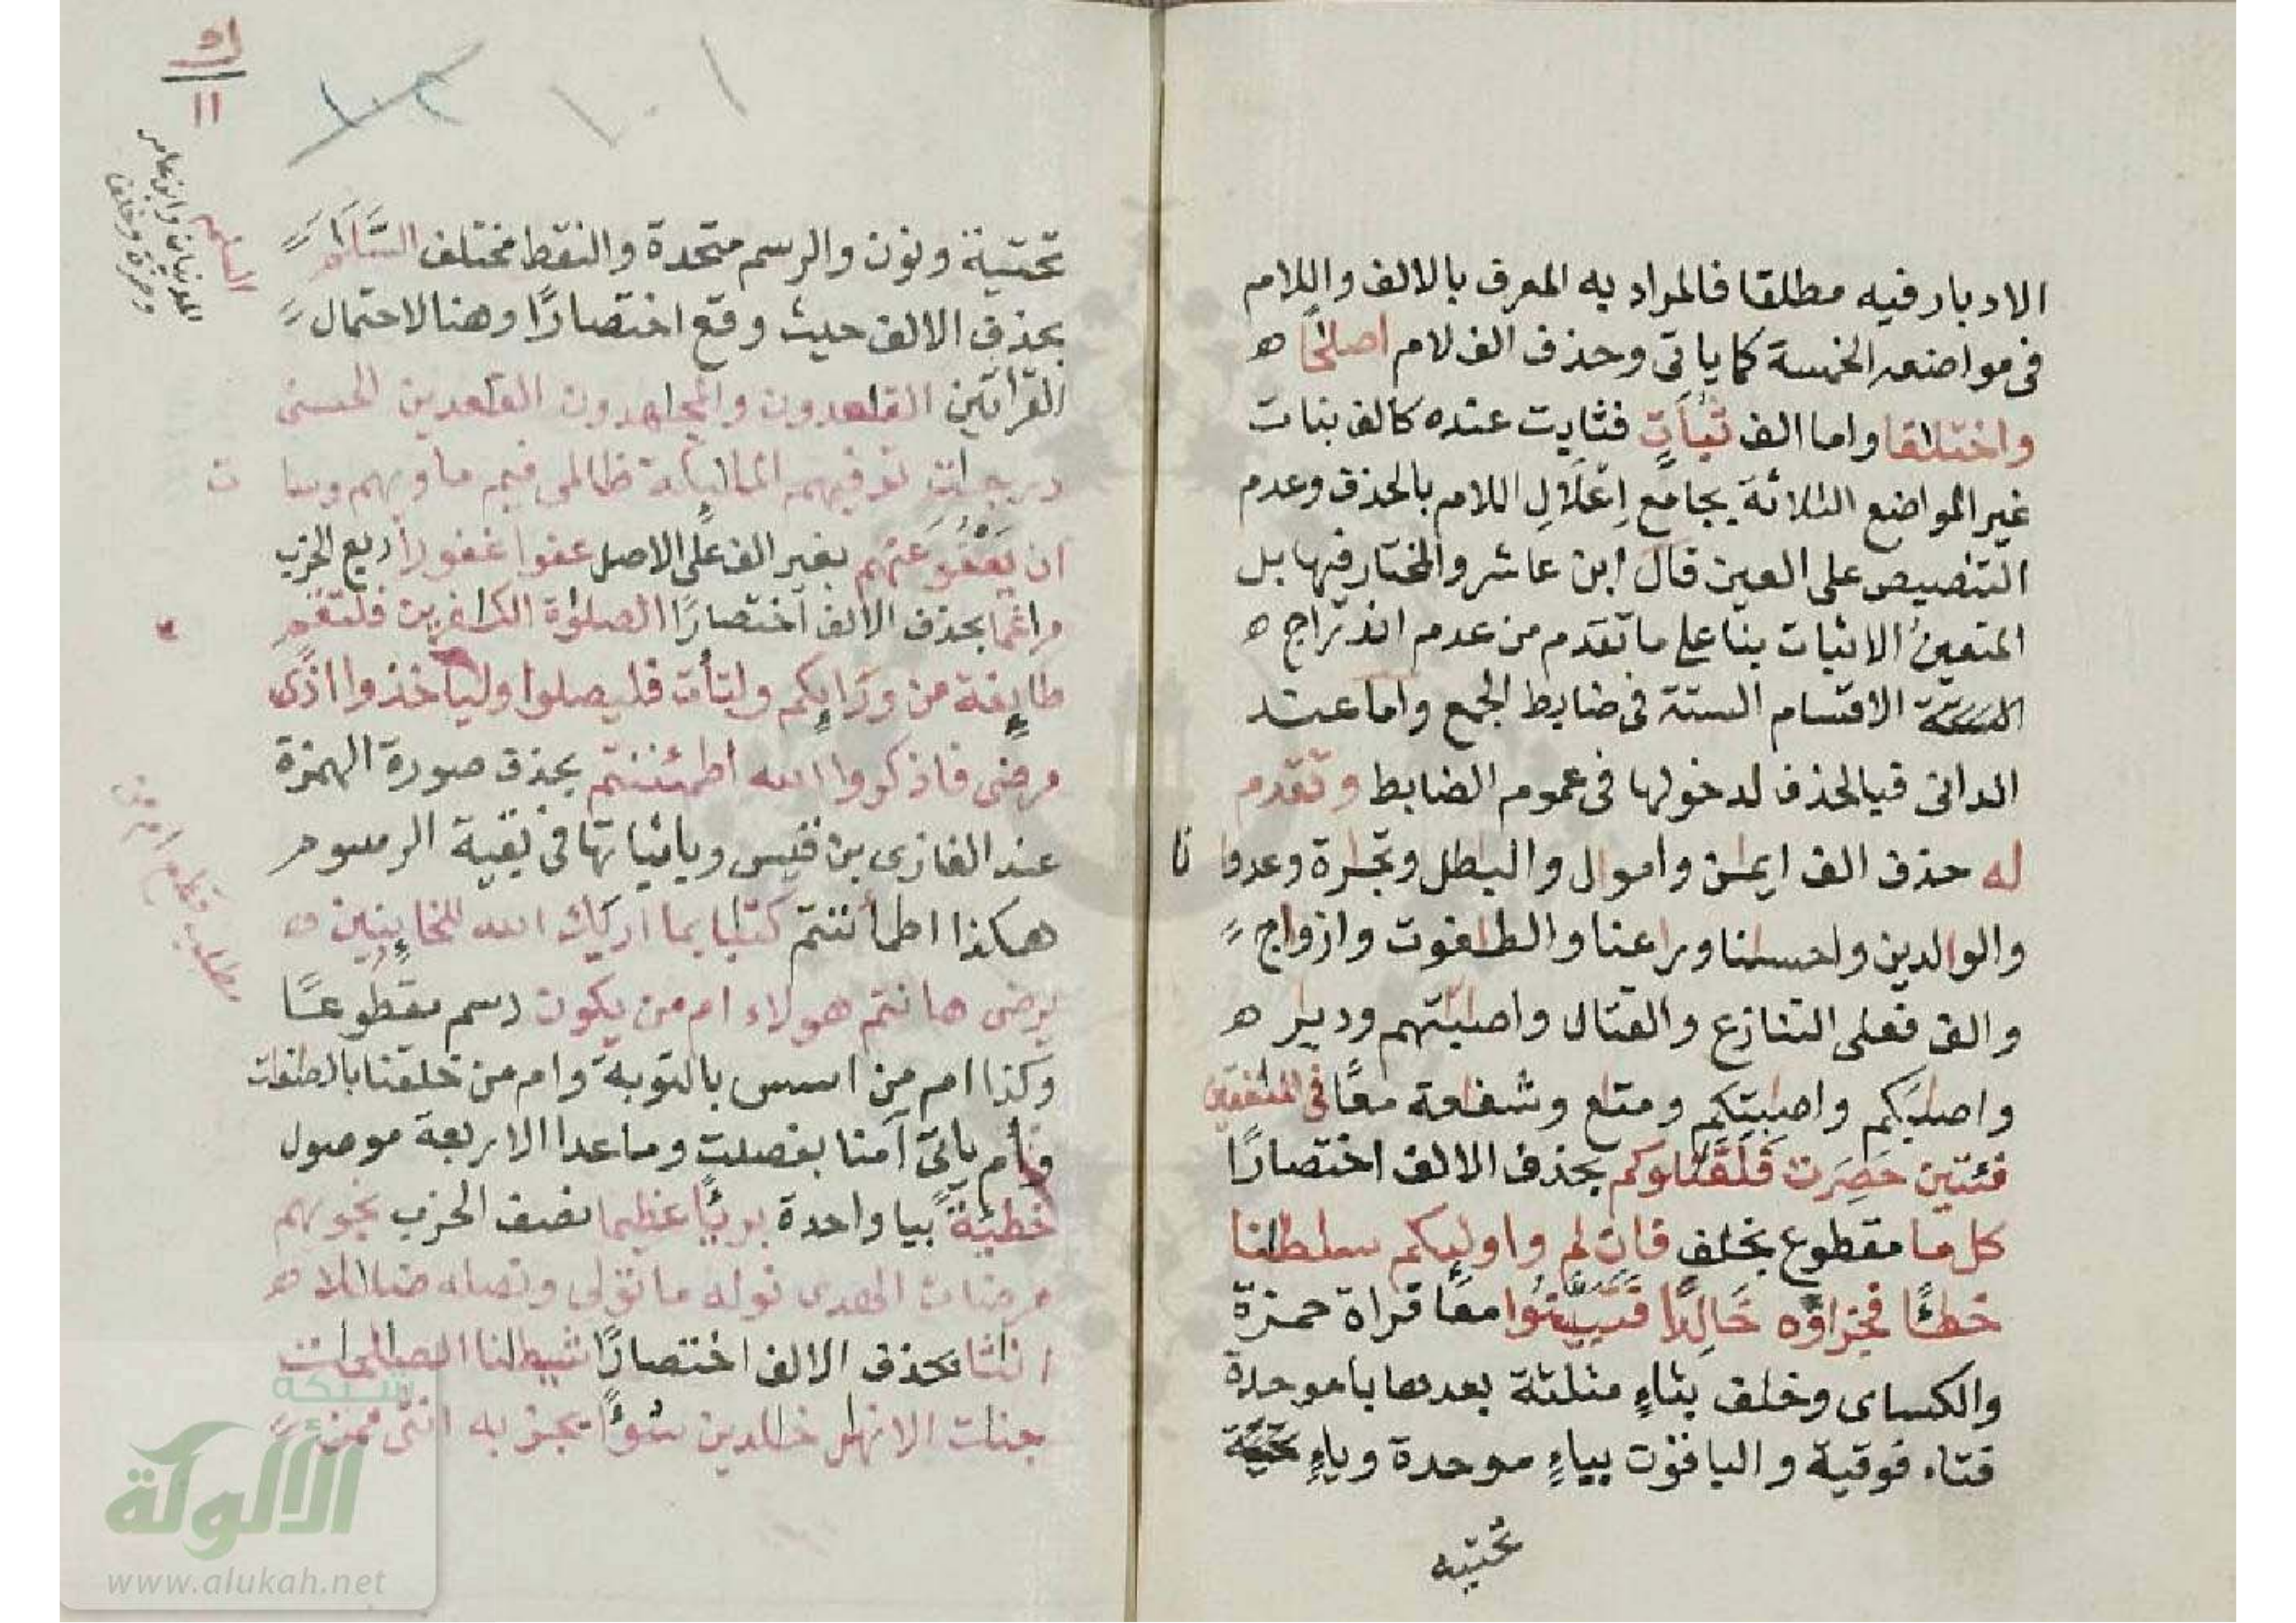 الادبار فيه مطلقا فالمراد به المعرف بالالف واللام
فى مواضعه الخمسة كما ياتى وحذف الف لام اصلٰحًا ه
واختلٰقا واما الف ثُبَاتٍ فثابت عنده كالف بنات
غير المواضع الثلاثة بجامع اِعْلَالِ اللام بالحذف وعدم
التنصيص على العين قال ابن عاشر والمختار فيها بل
المتعينُ الاثبات بنا على ما تقدم من عدم اندراج ه
الاقسام الستة فى ضابط الجمع واما عند
الدانى فبالحذف لدخولها فى عموم الضابط وتقدم
له حذف الف ايمٰن وامول والبطل وتجٰرة وعدوا نا
والوالدين واحسٰنا ورٰعنا والطٰغوت وازواج
والف فعلى التنازع والقتال واصٰبتهم وديٰر ه
واصٰبكم واصٰبتكم ومتٰع وشفٰعة معًا فى المنٰفقين
فئتين حَصِرَت فَلَقَٰتلوكم بحذف الالف اختصارًا
كل ما مقطوع بخلف فان لم واولٰيكم سلطٰنا
خطئًا فجزاؤه خَالِدًا فتبينوا معًا قراة حمزة
والكساى وخلف بثاءٍ مثلثة بعدها با موحدة
فتاء فوقية والباقون بباءٍ موحدة وياءٍ
تحتيه
١٠١
١٠٢
١١
السلٰم
المدنيان وابن عامر
وحمزة وخلف
تحتية ونون والرسم متحدة والنقط مختلف السَّلَٰمَ
بحذف الالف حيث وقع اختصارًا وهنا لاحتمال
القراتين القٰعدون والمجٰهدون القٰعدين الحسنى
درجٰت توفيهم الملٰيكة ظالمى فيم ماويهم وسا ت
ان يَعْفُوَ عَنْهُم بغير الف على الاصل عفوا غفورا ربع الحزب
مراغما بحذف الالف اختصارًا الصلوٰة الكٰفرين فلتقم
طايفة من ورايكم ولتأت فليصلوا ولياخذوا اذًى
مرضى فاذكروا الله اطمئننتم بحذف صورة الهمزة
عند الغازى بن قيس وباثباتها فى بقية الرسوم
هكذا اطمأننتم كتٰبا بما اريٰك الله للخاينين ه
يرضى هانتم هولاء ام من يكون رسم مقطوعًا
وكذا ام من اسس بالتوبة وام من خلقنا بالصٰفٰت
وام ياتى آمنا بفصلت وما عدا الاربعة موصول
خطيئة بيا واحدة بريئًا عظيما نصف الحزب نجويهم
مرضات الهدى نوله ما تولى ونصله ضلٰلا ه
انٰثا بحذف الالف اختصارًا شيطٰنا الصٰلحٰت
جنات الانهٰر خٰلدين سُوءًا يجز به انثى
مطلب قطع ام من
شبكة
الألوكة
www.alukah.net